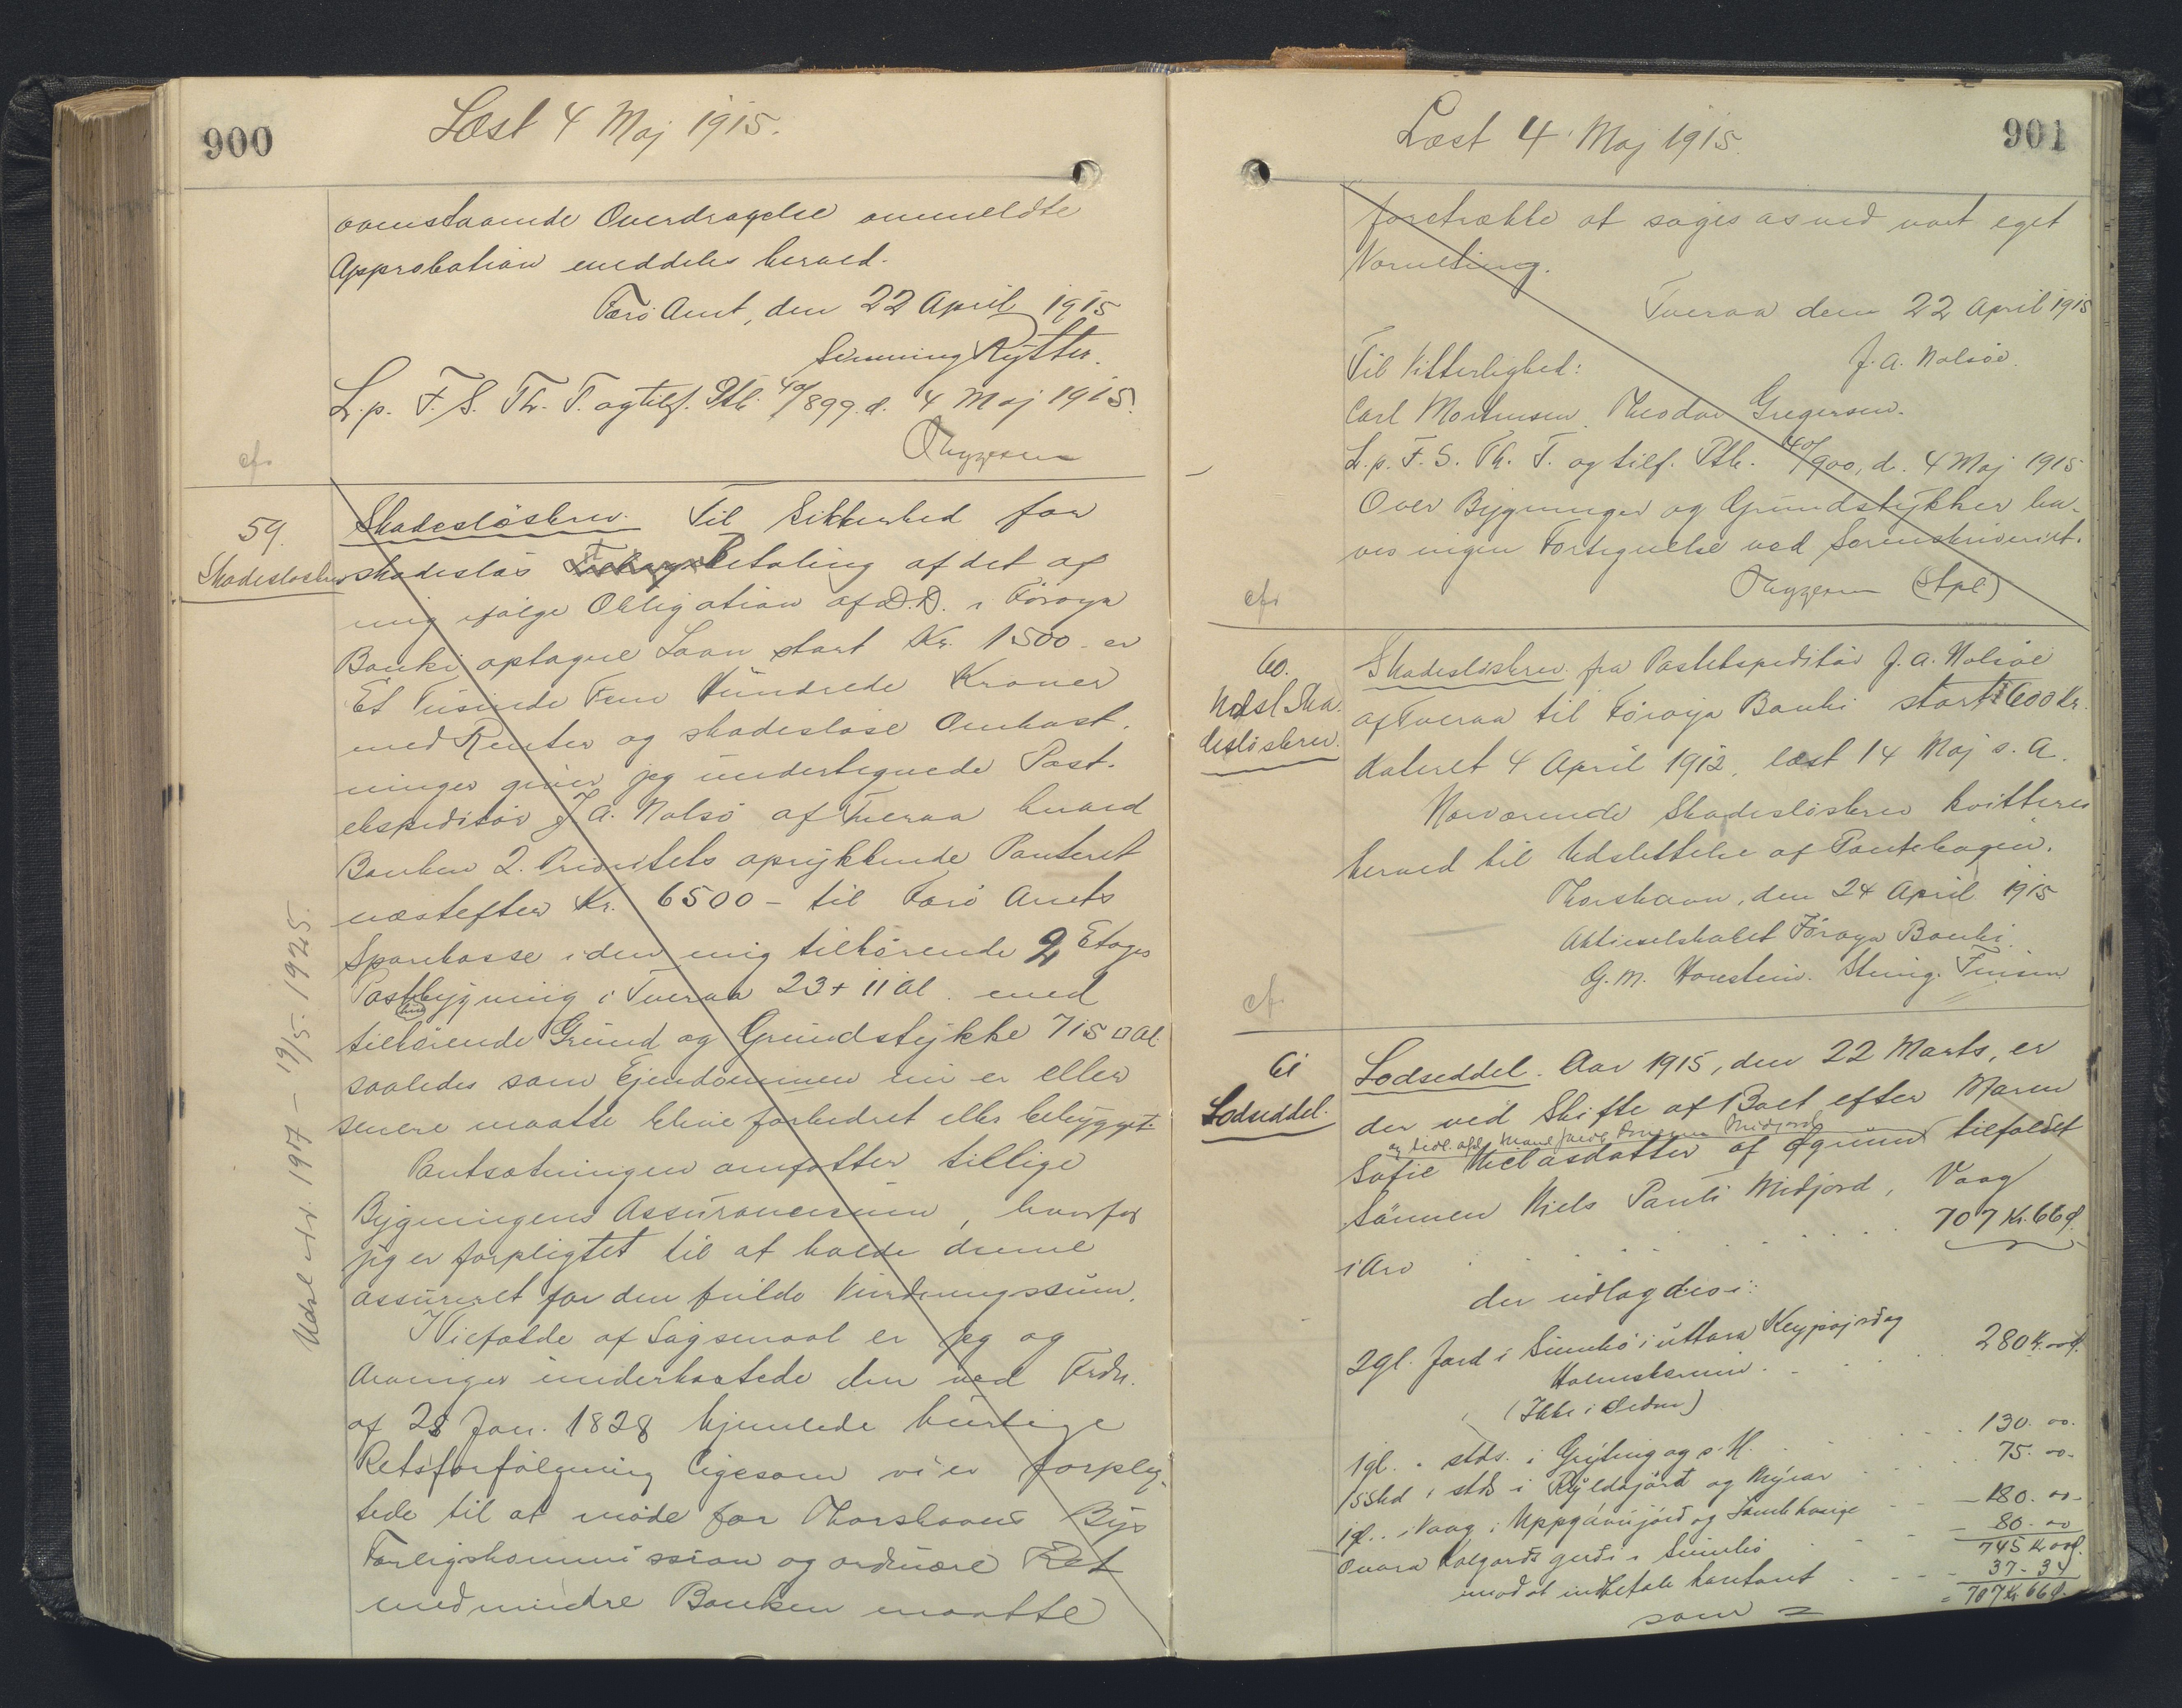 900
Læst 4 Maj 1915.
ovenstaaende Overdragelse anmeldte
Approbation meddeles herved.
Færö Amt, den 22 April 1915
Rytter.
L. p. F. S. Th. T. og tilf. Ptb. 40/899. d. 4 Maj 1915.
cfr
59.
Skadesløsbrev
Skadesløsbrev. Til Sikkerhed for
skadesløs Betaling af det af
mig ifølge Obligation af D.D. i Föroya
Banki optagne Laan stort Kr. 1500 - er
Et Tusinde Fem Hundrede Kroner
med Renter og skadesløse Omkost-
ninger giver jeg undertegnede Post-
ekspeditör J. A. Nolsö af Tveraa herved
Banken 2. Prioritets oprykkende Panteret
næstefter Kr. 6500 - til Færö Amts
Sparekasse i den mig tilhörende 2 Etages
Postbygning i Tveraa 23 + 11 Al. med
tilhörende Grund og Grundstykke 715 □ Al.
saaledes som Ejendommen nu er eller
senere maatte blive forbedret eller bebygget.
Pantsætningen omfatter tillige
Bygningens Assurancesum, hvorfor
jeg er forpligtet til at holde denne
assureret for den fulde Vurderingssum.
I Tilfælde af Søgsmaal er jeg og
Arvinger underkastede den ved Frdn.
af 28 Jan. 1828 hjemlede hurtige
Retsforfölgning ligesom vi er forplig-
tede til at møde for Thorshavns Bys
Forligskommission og ordinære Ret
medmindre Banken maatte
Udsl. 1917 - 19/5. 1925.
901
Læst 4 Maj 1915.
foretrække at søges os ved vort eget
Værneting.
Tveraa den 22 April 1915
Til Vitterlighed:
J. A. Nolsöe.
Carl Mortensen. Theodor Gregersen.
L. p. F. S. Th. T. og tilf. Ptb. 40/900, d. 4 Maj 1915
Over Bygninger og Grundstykker ha-
ves ingen Fortegnelse ved Sorenskriveriet.
(Stpl)
cfr
60.
Udsl. Ska-
desløsbrev.
Skadesløsbrev fra Postekspeditör J. A. Nolsöe
af Tveraa til Föroya Banki stort 1600 Kr.
dateret 4 April 1912, læst 14 Maj s. A.
Nærværende Skadesløsbrev kvitteres
herved til Udslettelse af Pantebogen.
Thorshavn, den 24 April 1915
Aktieselskabet Föroya Banki.
cf
61
Lodseddel.
Lodseddel. Aar 1915, den 22 Marts, er
der ved Skifte af Boet efter Maren
Sofie Niclasdatter af tilfaldet
Sönnen Niels Pauli Midjord, Vaag
i Arv . . . 707 Kr. 66 Ø.
der udlagdes i:
2 gl. Jord i Sumbö i úttara og
280 Kr. 00 Ø.
(Ikke i Seden)
1 gl. " stds. i og s. H. . . . 130. 00.
15 Skd i stds i og Mýrar . . . 75. 00
1 gl. . i Vaag i og . . . 180. 00
i Sumbö . . . 80. 00
745 Kr 00 Ø.
mod at indbetale kontant . . . 37 - 34
som = = 707 Kr 66 Ø.